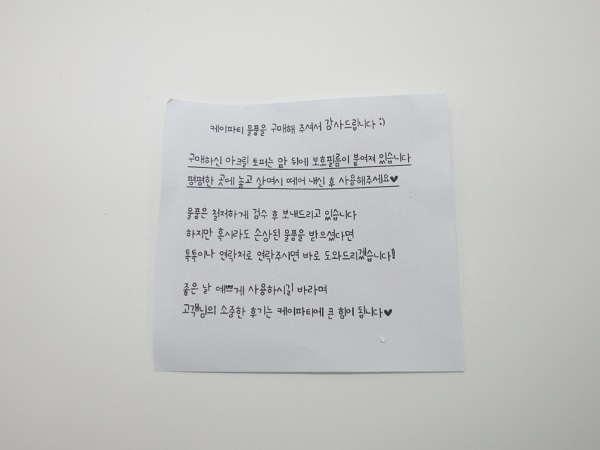 케이파티 물품을 구매해 주셔서 감사드립니다 :)
구매하신 아크릴 토퍼는 앞 뒤에 보호필름이 붙여져 있습니다
평평한 곳에 놓고 살며시 떼어 내신 후 사용해주세요♥
물품은 철저하게 검수 후 보내드리고 있습니다
하지만 혹시라도 손상된 물품을 받으셨다면
톡톡이나 연락처로 연락주시면 바로 도와드리겠습니다!
좋은 날 예쁘게 사용하시길 바라며
고객님의 소중한 후기는 케이파티에 큰 힘이 됩니다♥